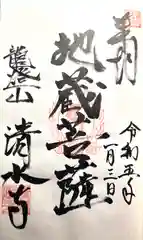 奉拝
令和五年
二月三日
地蔵菩薩
清水寺